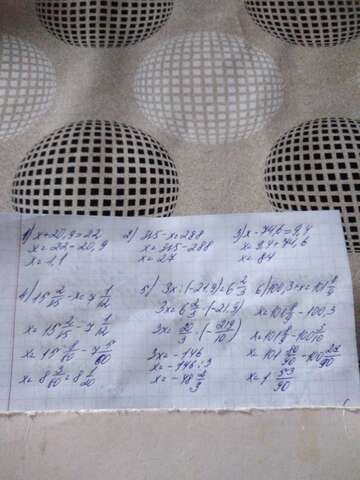 1) x+20,9=22
x=22-20,9
x=1,1
2) 315-x=288
x=315-288
x=27
3) x-74,6=9,4
x=9,4+74,6
x=84
4) 15 2/15-x=7 1/12
x=15 2/15-7 1/12
x=8 3/60=8 1/20
5) 3x:(-21,9)=6 2/3
3x=6 2/3·(-21,9)
3x=20/3·(-219/10)
3x=-146
x=-146:3
x=-48 2/3
6) 100,3+x=101 8/9
x=101 8/9-100,3
x=101 8/9-100 3/10
x=101 80/90-100 27/90
x=1 53/90